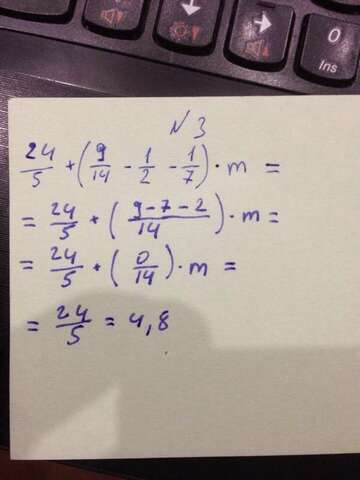 0
Ins
№3
24/5 + (9/14 - 1/2 - 1/7) · m =
= 24/5 + (9-7-2/14) · m =
= 24/5 + (0/14) · m =
= 24/5 = 4,8